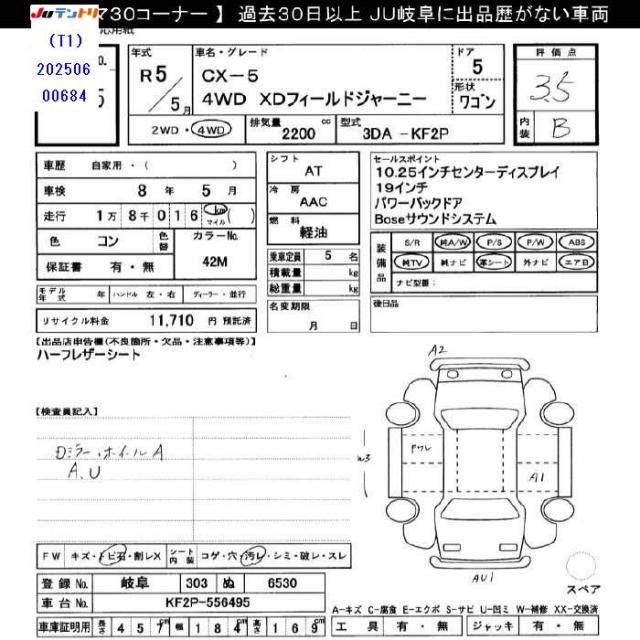 JUテントリ
マ30コーナー 】 過去30日以上 JU岐阜に出品歴がない車両
(T1)
202506
00684
No.
5
年式
R5年
5月
車名・グレード
CX-5
4WD XDフィールドジャーニー
ドア
5
形状
ワゴン
評価点
3.5
内装
B
2WD・4WD
排気量
2200 cc
型式
3DA -KF2P
車歴 自家用・( )
車検 8年 5月
走行 1万 8千 016 km マイル ( )
色 コン
色替
カラーNo.
42M
保証書 有・無
モデル年式 年 ハンドル 左・右 ディーラー・並行
リサイクル料金 11,710 円 預託済
シフト AT
冷房 AAC
燃料 軽油
乗車定員 5 名
積載量 kg
総重量 kg
名変期限
月 日
セールスポイント
10.25インチセンターディスプレイ
19インチ
パワーバックドア
Boseサウンドシステム
装備品
S/R 純A/W P/S P/W ABS
純TV 純ナビ 革シート 外ナビ エアB
ナビ型番:
後日品
【出品店申告欄(不良箇所・欠品・注意事項等)】
ハーフレザーシート
【検査員記入】
Dミラー・ホイルA
A,U
A2
W3
Pワレ
A1
AU1
スペア
FW キズ・トビ石・割レX
シート内装 コゲ・穴・汚レ・シミ・破レ・スレ
登録No. 岐阜 303 ぬ 6530
車台No. KF2P-556495
車庫証明用 長さ 457 幅 184 高さ 169
A-キズ C-腐食 E-エクボ S-サビ U-凹ミ W-補修 XX-交換済
工具 有・無 ジャッキ 有・無